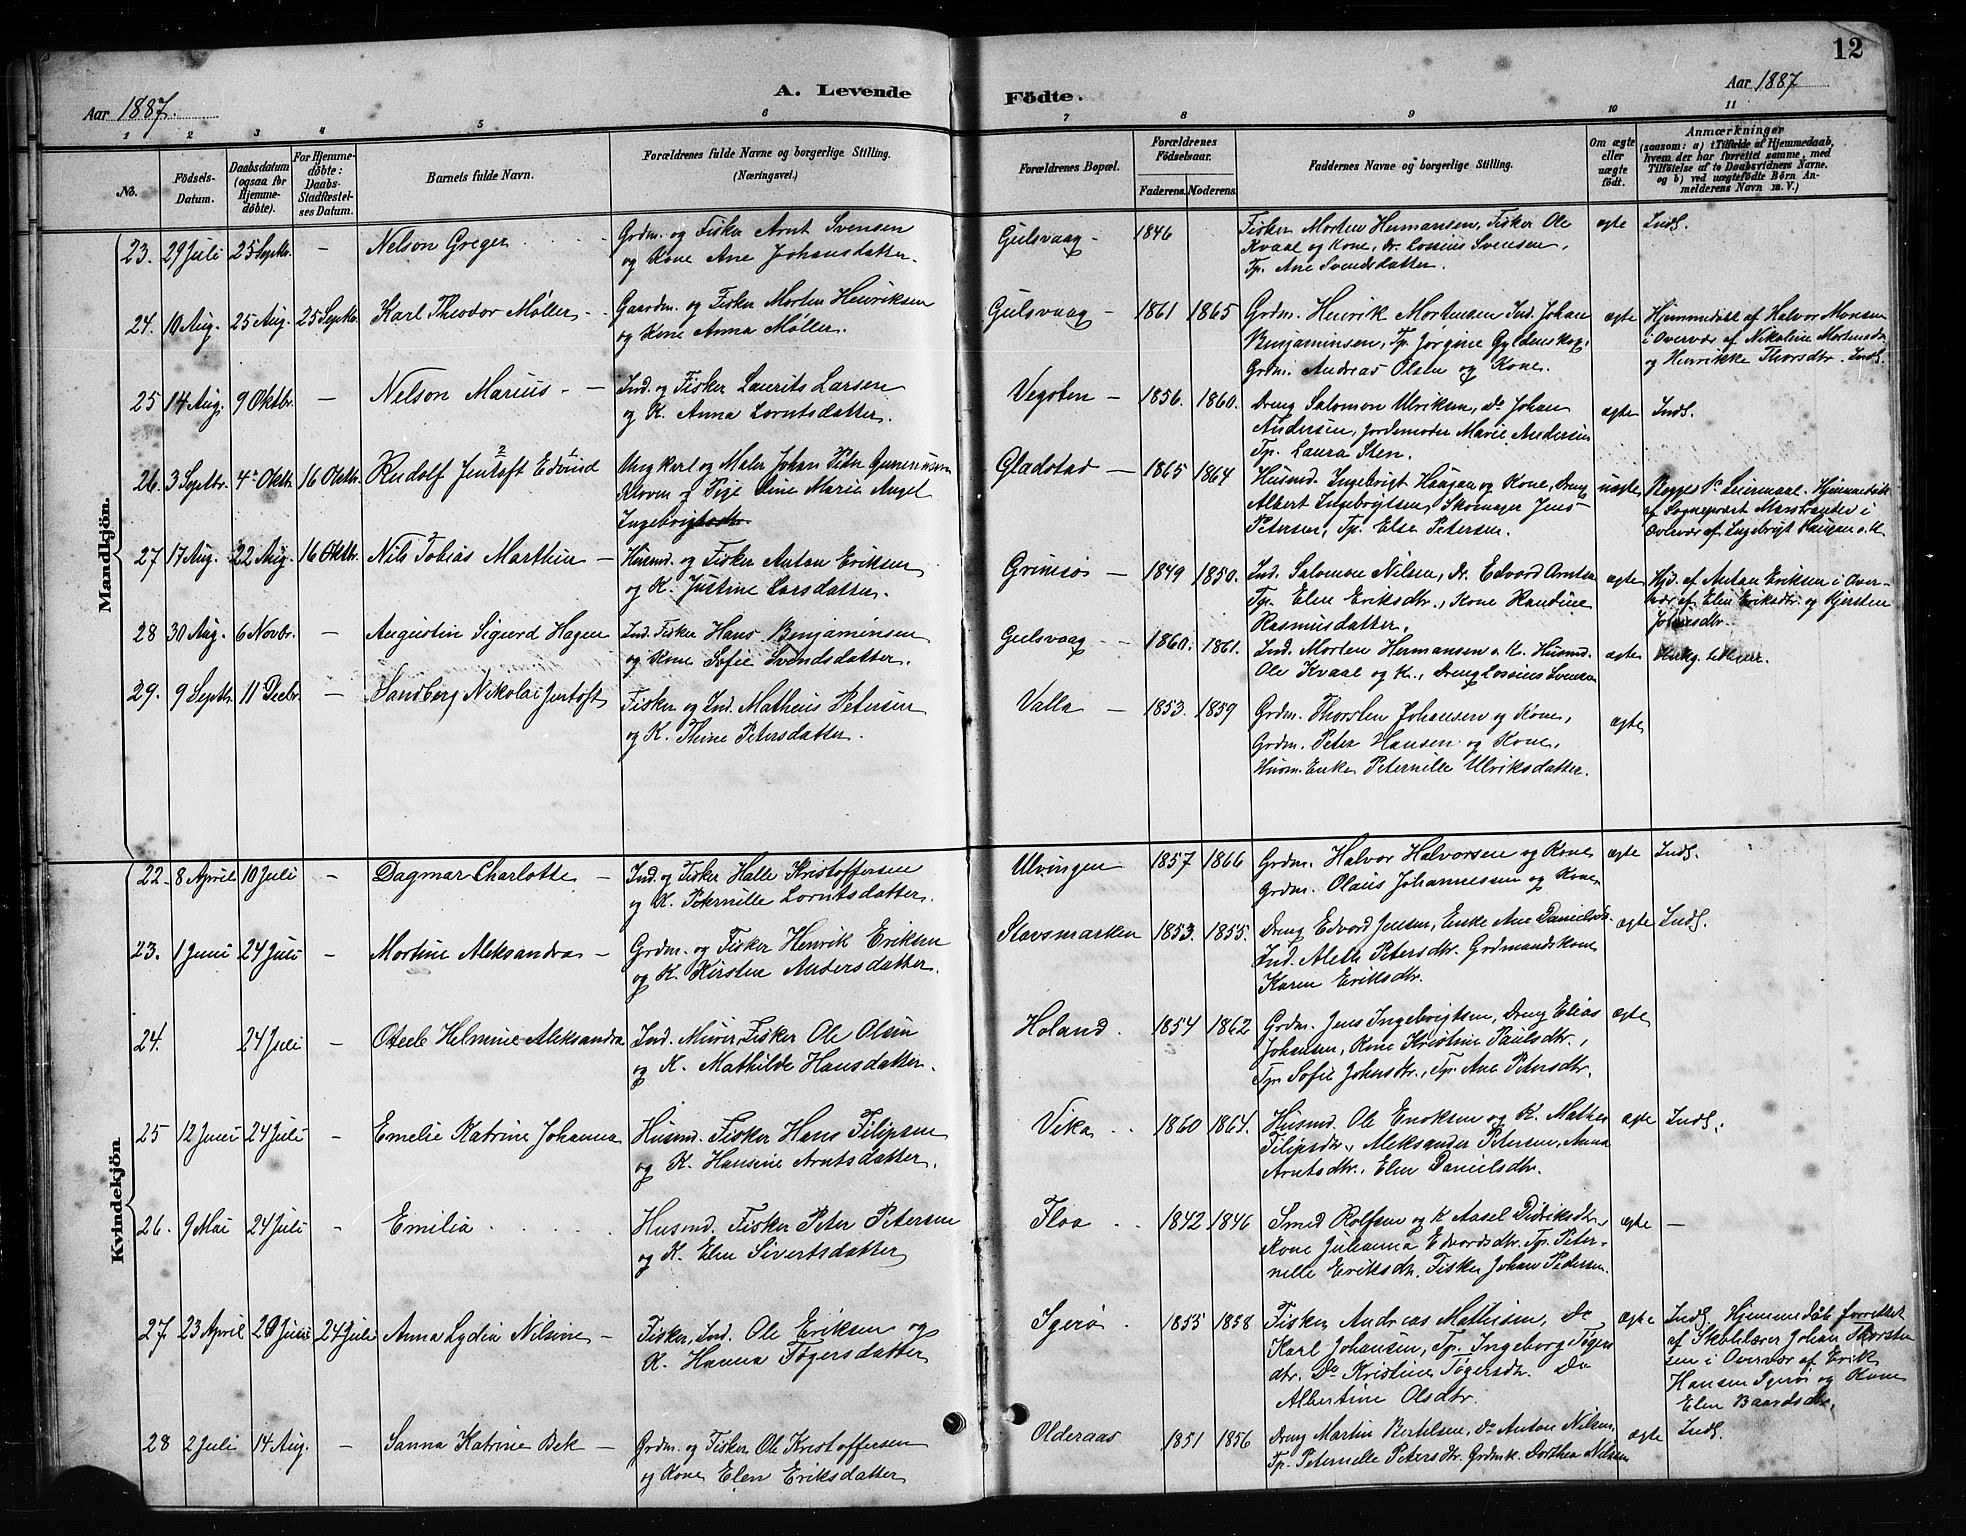 12
Aar 1887.
A. Levende
Födte.
Aar 1887
1 2 3 4 5 6 7 8 9 10 11
No.
Födsels-Datum.
Daabsdatum (ogsaa for Hjemmedöbte).
For Hjemmedöbte: Daabs-Stadfestelses Datum.
Barnets fulde Navn.
Forældrenes fulde Navne og borgerlige Stilling. (Næringsvei.)
Forældrenes Bopæl.
Forældrenes Födselsaar.
Faderens. Moderens.
Faddernes Navne og borgerlige Stilling.
Om ægte eller uægte födt.
Anmærkninger
(saasom: a) i Tilfælde af Hjemmedaab, hvem der har forrettet samme, med Tilföielse af to Daabsvidners Navne, og b) ved uægtefödte Börn Anmelderens Navn m. V.)
Mandkjön.
23. 29 Juli 25 Septbr. - Nelson Greger
Grdm. og Fisker Arnt Svensen
og Kone Ane Johansdatter.
Gulsvaag - 1846
Fisker Morten Hermansen, Fisker Ole
Kvaal og Kone, Dr. Lossius Svensen,
Tp. Ane Svendsdatter.
ægte Inds.
24. 10 Aug. 25 Aug. 25 Septbr. Karl Theodor Møller -
Gaardm. og Fisker Morten Henriksen
og Kone Anna Møller.
Gulsvaag - 1861 1865
Grdm. Henrik Mortensen Ind. Johan
Benjaminsen, Tp. Jorgine Gyldenskog,
Grdm. Andreas Olsen og Kone.
ægte
Hjemmedøbt af Halvor Monsen
i Overvær af Nikoline Mortensdr
og Henrikke Thorsdtr. Inds.
25 14 Aug. 9 Oktbr. - Nelson Marius -
Ind. og Fisker Laurits Larsen
og K. Anna Lorntsdatter.
Vegsten - 1856. 1860.
Dreng Salomon Ulriksen, do Johan
Andersen, Jordemoder Marie Andersen
Tp. Laura Sten.
ægte Inds.
26. 3 Septbr. 4de Oktbr. 16 Oktbr. Rudolf Jentoft Edvind
Ungkarl og Maler Johan Peter
Kloven og Pige Line Marie Angel
Ingebrigtsdtr.
Gladstad - 1865 1864
Husmd. Ingebrigt Haagan og Kone, Dreng
Albert Ingebrigtsen, Skomager Jens
Petersen, Tp. Else Petersen.
uægte
Begges 1ste Leiermaal. Hjemmedøbt
af Sogneprest Marstrander i
Overvær af Ingebrigt Haugan o. K.
27 17 Aug. 22 Aug. 16 Oktbr. Nils Tobias Marthin -
Husmd. og Fisker Anton Eriksen
og K. Justine Larsdatter.
Grimsø - 1849 1850.
Ind. Salomon Nilsen, Dr. Edvard Arntsen
Tp. Elen Eriksdtr., Kone Randine
Rasmusdatter.
ægte
Hjd. af Anton Eriksen i Over-
vær af Elen Eriksdtr. og Kjersten
Johansdtr.
28 30 Aug. 6 Novbr. - Augustin Sigurd Hagen
Ind. Fisker Hans Benjaminsen
og Kone Sofie Svendsdatter.
Gulsvaag - 1860. 1861.
Ind. Morten Hermansen o. K. Husmd.
Ole Kvaal og K., Dreng Lossius Svensen
ægte
29. 9 Septbr. 11 Decbr. - Sandberg Nikolai Jentoft
Fisker og Ind. Matheus Petersen
og K. Thine Petersdatter.
Valla - 1853. 1859
Grdm. Thorsten Johansen og Kone,
Grdm. Peter Hansen og Kone,
Husm. Enke Peternille Ulriksdatter.
ægte
Kvindekjön
22. 8 April 10 Juli - Dagmar Charlotte -
Ind. og Fisker Halle Kristoffersen
og K. Peternille Lorntsdatter.
Ulvingen 1857 1866
Grdm. Halvor Halvorsen og Kone
Grdm. Olaus Johannessen og Kone
ægte Inds.
23. 1 Juni 24 Juli - Mortine Aleksandra -
Grdm. og Fisker Henrik Eriksen
og K. Kirsten Andersdatter.
Slavsmarken 1853. 1855.
Dreng Edvard Jensen, Enke Ane Danielsdtr.
Ind. Aleth Petersdtr. Grdmandskone
Karen Eriksdtr.
ægte Inds.
24. 24 Juli - Otele Helmine Aleksandra
Ind. Murer, Fisker Ole Olsen
og K. Mathilde Hansdatter.
Holand. 1854 1862
Grdm. Jens Ingebrigtsen, Dreng Elias
Johansen, Kone Kristine Paulsdtr.,
Tp. Sofie Johnsdtr., Tp. Ane Petersdtr.
ægte
25 12 Juni 24 Juli - Emelie Katrine Johanna
Husmd. Fisker Hans Filipsen
og K. Hansine Arntsdatter.
Vika 1860 1864.
Husmd. Ole Enoksen og K. Mathea
Filipsdtr., Aleksander Petersen, Anna
Arntsdtr., Elen Danielsdtr.
ægte Inds.
26. 9 Mai 24 Juli - Emilia
Husmd. Fisker Peter Petersen
og K. Elen Sivertsdatter
Floa 1842 1846
Smed Rolfsen og K. Aasel Didriksdtr.
Kone Julianna Edvardsdtr. Tp. Peter-
nille Eriksdtr. Fisker Johan Pedersen.
ægte -
27. 23 April 20 Juni 24 Juli Anna Lydia Nilsine -
Fisker, Ind. Ole Eriksen og
K. Hanna Tøgersdatter
Igerø 1855 1858
Fisker Andreas Mathisen, Do
Karl Johansen, Tp. Ingeborg Tøgers
dtr. Do Kristine Tøgersdtr. Do
Albertine Olsdtr.
ægte
Inds. Hjemmedåb forrettet
af Skolelærer Johan Thorsten
sen i Overvær af Erik
Hansen Igerø og Kone
Elen Baardsdtr.
28 2 Juli 14 Aug. - Sanna Katrine Bek -
Grdm. og Fisker Ole Kristoffersen
og Kone Elen Eriksdatter
Olderaas 1851 1856
Dreng Martin Bertelsen, do Anton Nilsen,
Tp. Peternelle Petersdtr. Grdmk. Dorthea Nilsen
ægte Inds.